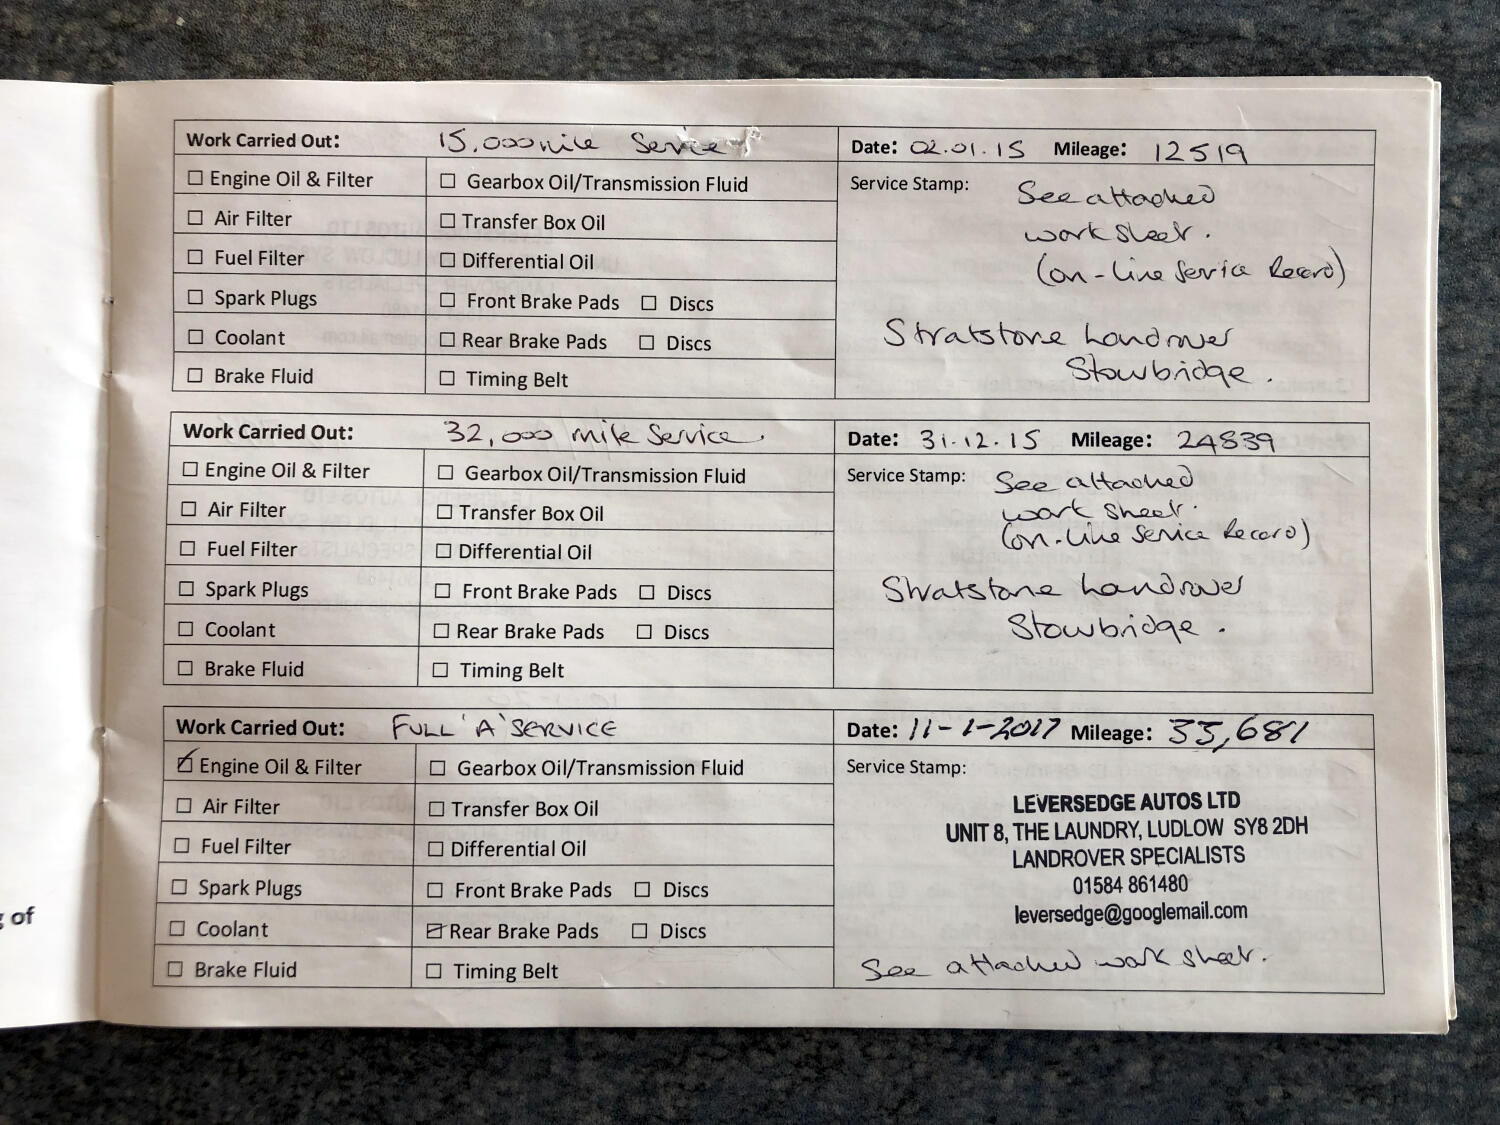 Work Carried Out: 15,000 mile Service
Date: 02.01.15 Mileage: 12519
Engine Oil & Filter Gearbox Oil/Transmission Fluid
Air Filter Transfer Box Oil
Fuel Filter Differential Oil
Spark Plugs Front Brake Pads Discs
Coolant Rear Brake Pads Discs
Brake Fluid Timing Belt
Service Stamp: See attached
work sheet.
(on-line Service Record)
Stratstone Landrover
Stourbridge.
Work Carried Out: 32,000 mile Service.
Date: 31.12.15 Mileage: 24839
Engine Oil & Filter Gearbox Oil/Transmission Fluid
Air Filter Transfer Box Oil
Fuel Filter Differential Oil
Spark Plugs Front Brake Pads Discs
Coolant Rear Brake Pads Discs
Brake Fluid Timing Belt
Service Stamp: See attached
work sheet.
(on-line Service Record)
Stratstone Landrover
Stourbridge.
Work Carried Out: FULL 'A' SERVICE
Date: 11-1-2017 Mileage: 35,681
Engine Oil & Filter Gearbox Oil/Transmission Fluid
Air Filter Transfer Box Oil
Fuel Filter Differential Oil
Spark Plugs Front Brake Pads Discs
Coolant Rear Brake Pads Discs
Brake Fluid Timing Belt
Service Stamp:
LEVERSEDGE AUTOS LTD
UNIT 8, THE LAUNDRY, LUDLOW SY8 2DH
LANDROVER SPECIALISTS
01584 861480
leversedge@googlemail.com
See attached work sheet.
of